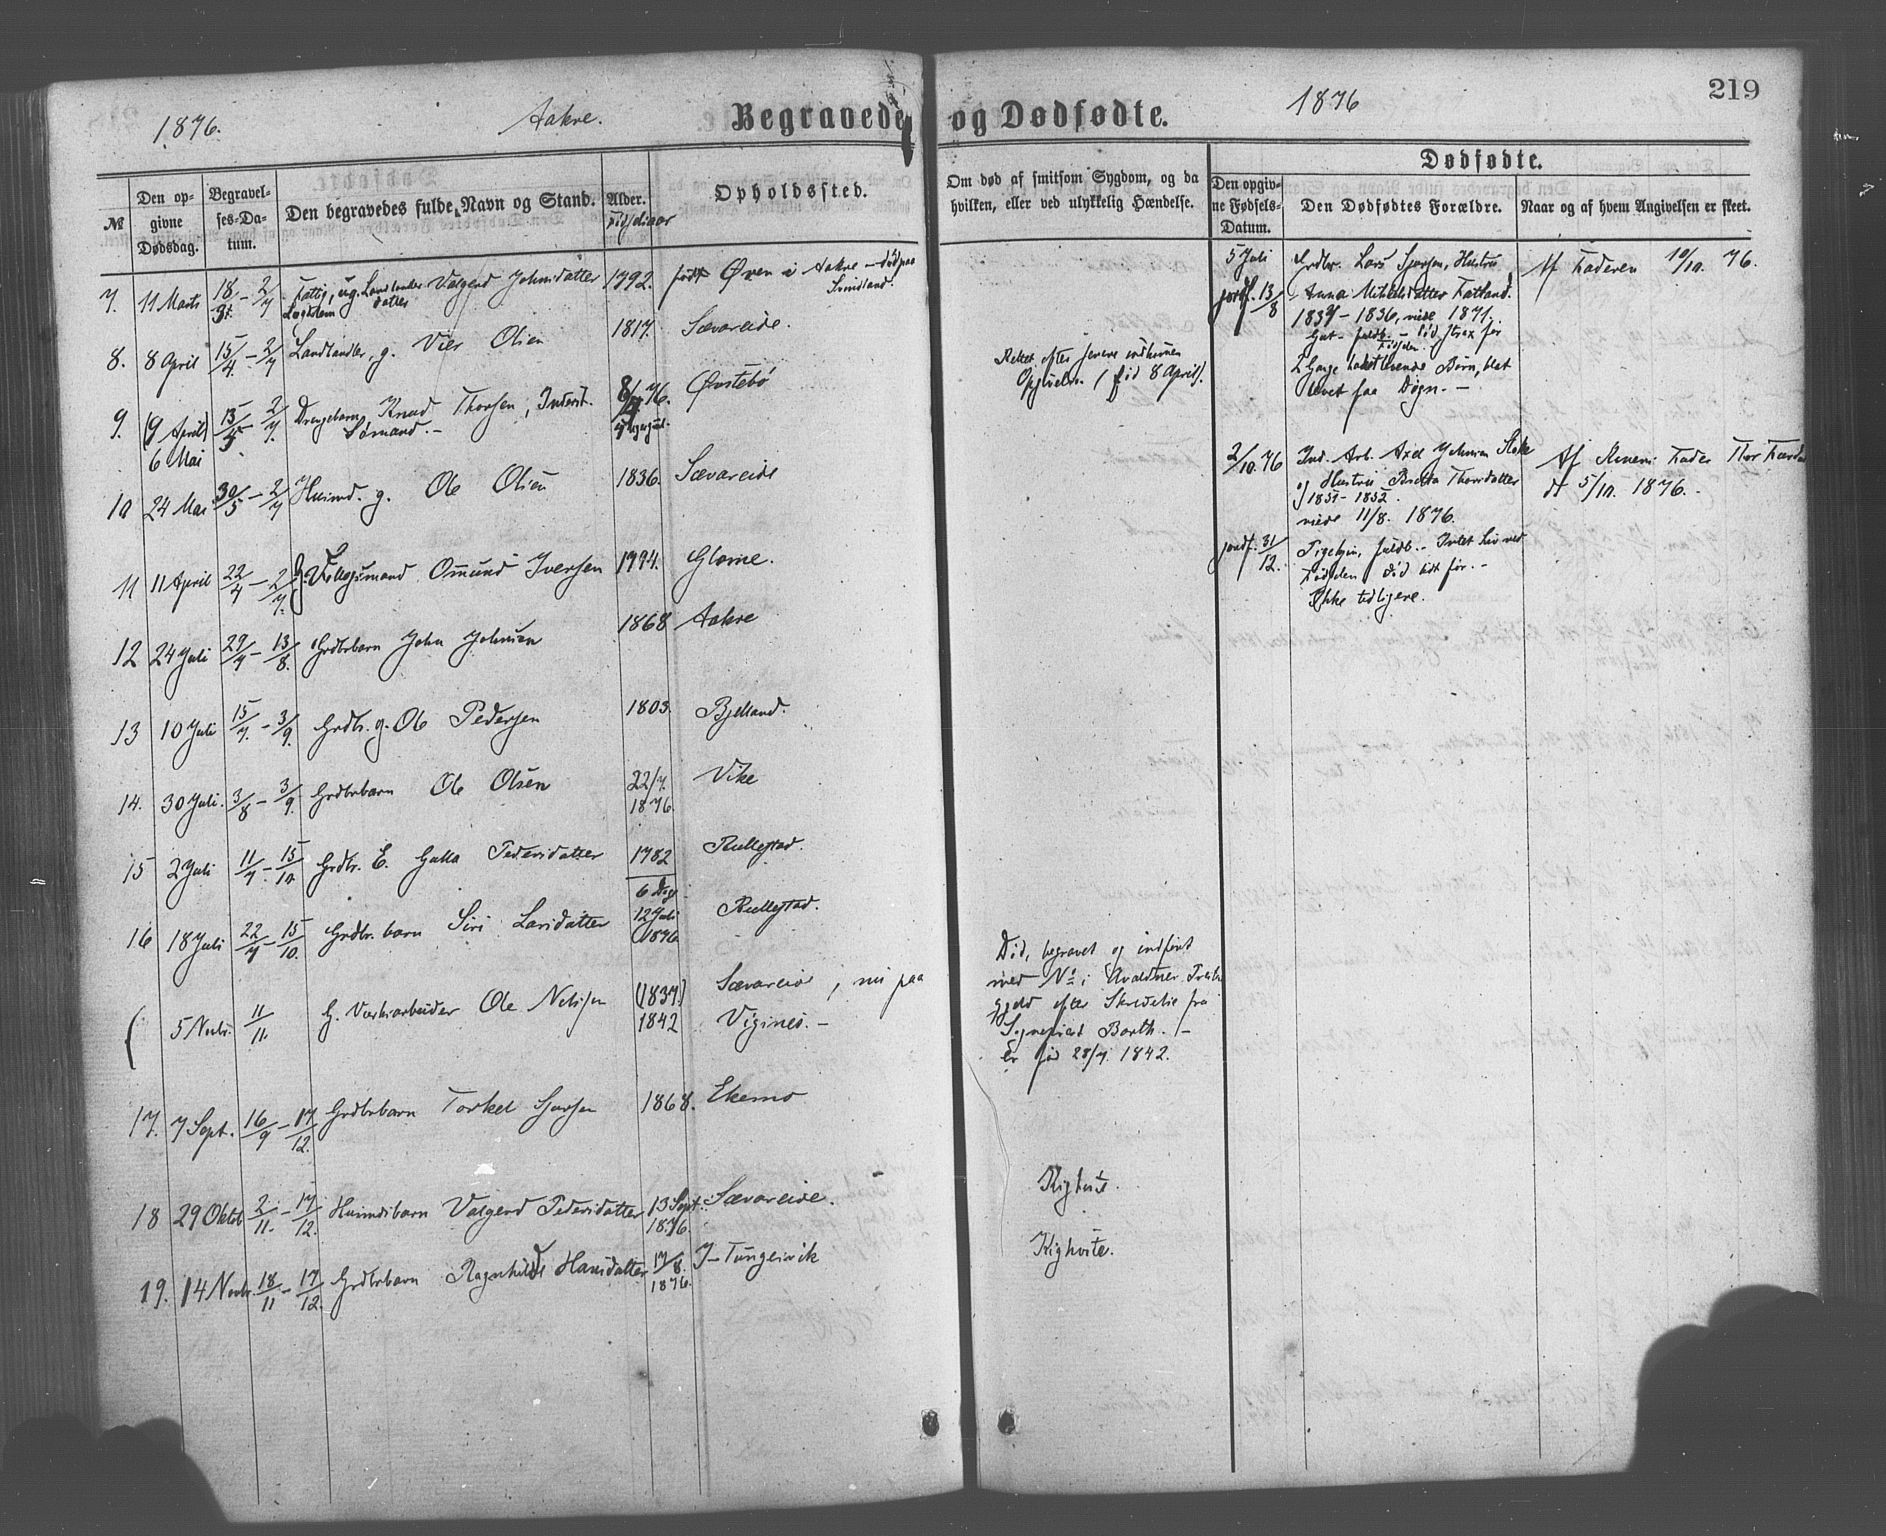 219
1876.
Aakre.
Begravede og Dødfødte.
1876
№
Den opgivne Dødsdag.
Begravelses-Datum.
Den begravedes fulde Navn og Stand.
Alder.
Fødselsaar
Opholdssted.
Om død af smitsom Sygdom, og da hvilken, eller ved ulykkelig Hændelse.
Dødfødte.
Den opgivne Fødsels-Datum.
Den Dødfødtes Forældre.
Naar og af hvem Angivelsen er skeet.
7. 11 Marts 18/3 - 2/7 Fattig, ug. Valgerd Johnsdatter 1792. født Øven i Aakre - død paa
8. 8 April 15/4 - 2/7 g. Vier Olsen 1817. Sævareide.
9. (9 April) 6 Mai 15/5 - 2/7. Drengebarn Knud Thorsen, 8/4 76. Østebø
Rettet efter senere indkommen
Opgivelse (fød 8 April).
10 24 Mai 30/5 - 2/7 Huusmd. g. Ole Olsen 1836. Sævareide
11 11 April 22/4 - 2/7. Omund Iversen 1794. Glome.
12 24 Juli 29/7 - 13/8. Grdbrbarn John Johnsen 1868 Aakre
13 10 Juli 15/7. - 3/9. Grdbr. g. Ole Pedersen 1803. Bjelland.
14. 30 Juli. 3/8 - 3/9. Grdbrbarn Ole Olsen 22/7. 1876. Vike
15 2 Juli 11/7. - 15/10 Grdbr. E. Pedersdatter 1782 Rullestad.
16 18 Juli 22/7 - 15/10. Grdbr. barn Siri Larsdatter 6 Dage 12 Juli 1876 Rullestad.
( 5 Novbr. 11/11. G. Værksarbeider Ole Nilssen (1837.) 1842 Sævareide, nu paa
Vigsnes. -
Død, begravet og indført
med № i Avaldsnes
efter Skrivelse fra
Sognepræst Barth. -
Er fød 28/7. 1842.
17. 7 Sept. 16/9 - 17/12. Grdbrbarn Torkel Sjursen 1868. Ekemo
18 29 Oktob 2/11. - 17/12. Huusmdsbarn Valgerd Pedersdatter 13 Sept. 1876. Sævareide.
Kighoste.
19. 14 Novbr. 18/11 - 17/12. Grdbrbarn Ragnhilde Hansdatter 17/8. 1876. Y-Tungesvik
Kighoste.
5 Juli
jordf. 13/8
Grdbr. Lars Sjursen, Hustru
Anna Mikkelsdatter Fatland.
1837 - 1836, viede 1871.
Gut - fuldb. - Død strax før
Fødselen.
2 Gange havt levende Børn, blot
levet faa Døgn. -
Af Faderen 10/10. 76.
2/10. 76
Ind. Arb. Axel Johnsen
og Hustru Thorsdatter
1851 - 1852.
viede 11/8. 1876.
Af Konens Fader Thor
dt 5/10. 1876.
jordf. 31/12.
Pigebarn, fuldb. - Intet Liv ved
Fødselen. Død lidt før. -
Ikke tidligere.